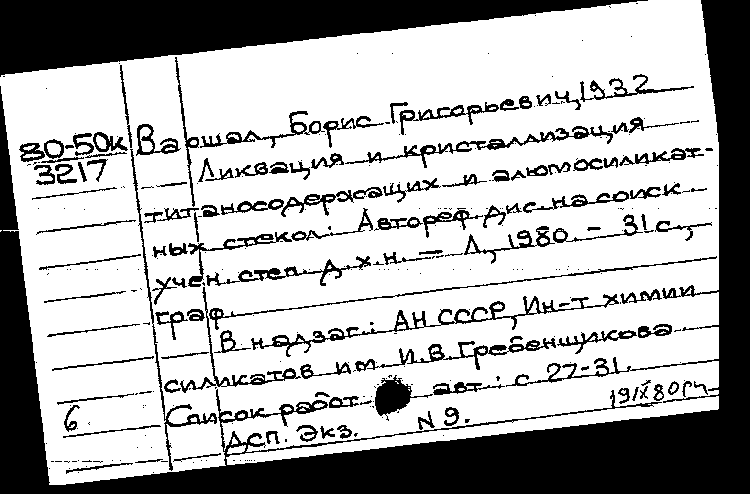 80-50к Варшал, Борис Григорьевич, 1932
3217 Ликвация и кристаллизация
титаносодержащих и алюмосиликат-
ных стекол: Автореф. дис. на соиск.
учен. степ. д. х. н. — Л., 1980. - 31 с.,
граф.
В надзаг.: АН СССР, Ин-т химии
силикатов им. И.В. Гребенщикова
6 Список работ авт.: с 27-31.
ДСП. Экз. N 9.